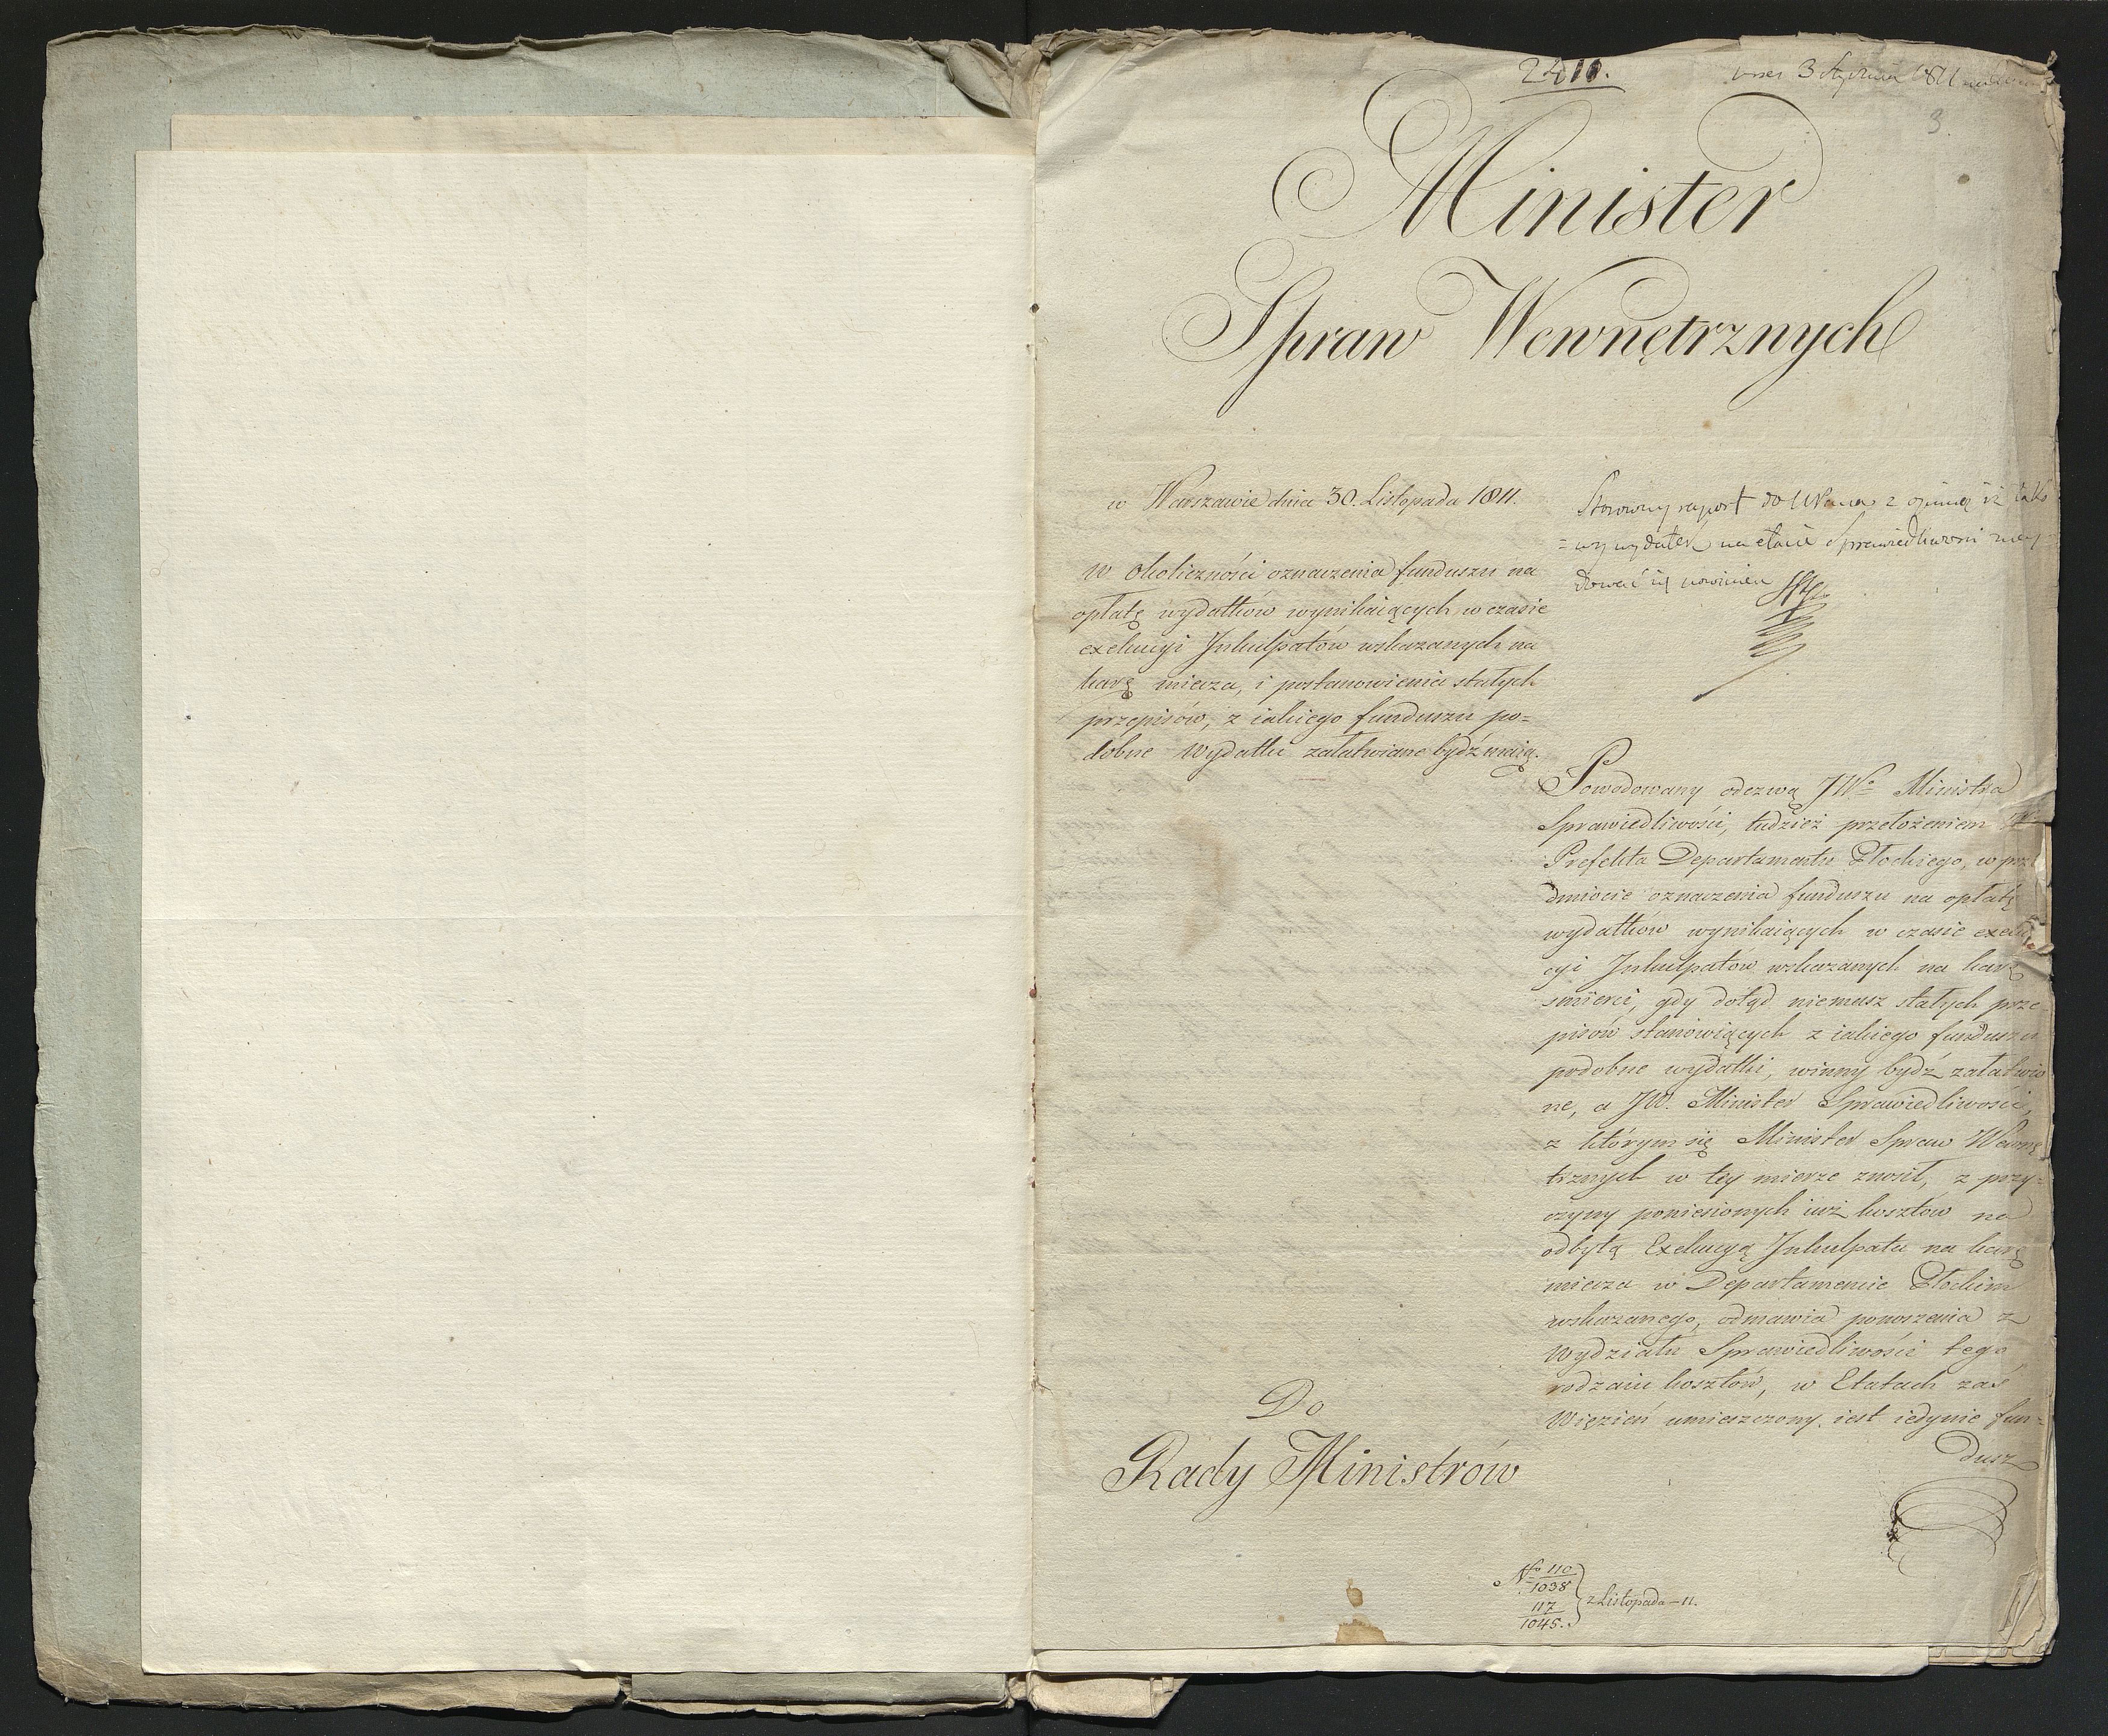 2410.
3 Stycznia 1811
3.
Minister
Spraw Wewnętrznych
w Warszawie dnia 30. Listopada 1811.
Stosowny raport do z opinią iż tako
=wy wydatek na etacie Sprawiedliwości znay
dować się powinien
W okoliczności oznaczenia funduszu na
opłatę wydatków wynikaiących w czasie
exekucyi Inkulpatów wskazanych na
karę miecza, i postanowienia stałych
przepisów, z iakiego funduszu po=
dobne wydatki załatwiane bydź maią.
Powodowany odezwą JWo Ministra
Sprawiedliwości, tudzież przełożeniem
Prefekta Departamentu Płockiego, w prze
dmiocie oznaczenia funduszu na opłatę
wydatków wynikaiących w czasie exeku
cyi Inkulpatów wskazanych na karę
śmierci, gdy dotąd niemasz stałych prze
pisów stanowiących z iakiego funduszu
podobne wydatki, winny bydź załatwio
ne, a JW. Minister Sprawiedliwości,
z którym się Minister Spraw Wewnę
trznych w tey mierze znosił, z przy=
czyny poniesionych iuż kosztów na
odbytą Exekucyą Inkulpata na karę
miecza w Departamencie Płockim
wskazanego, odmawia ponoszenia z
Wydziału Sprawiedliwości tego
rodzaiu kosztów, w Etatach zaś
Więzień umieszczony iest iedynie fun=
dusz
Do
Rady Ministrów
No 110
1038
117
1045.
z Listopada – 11.